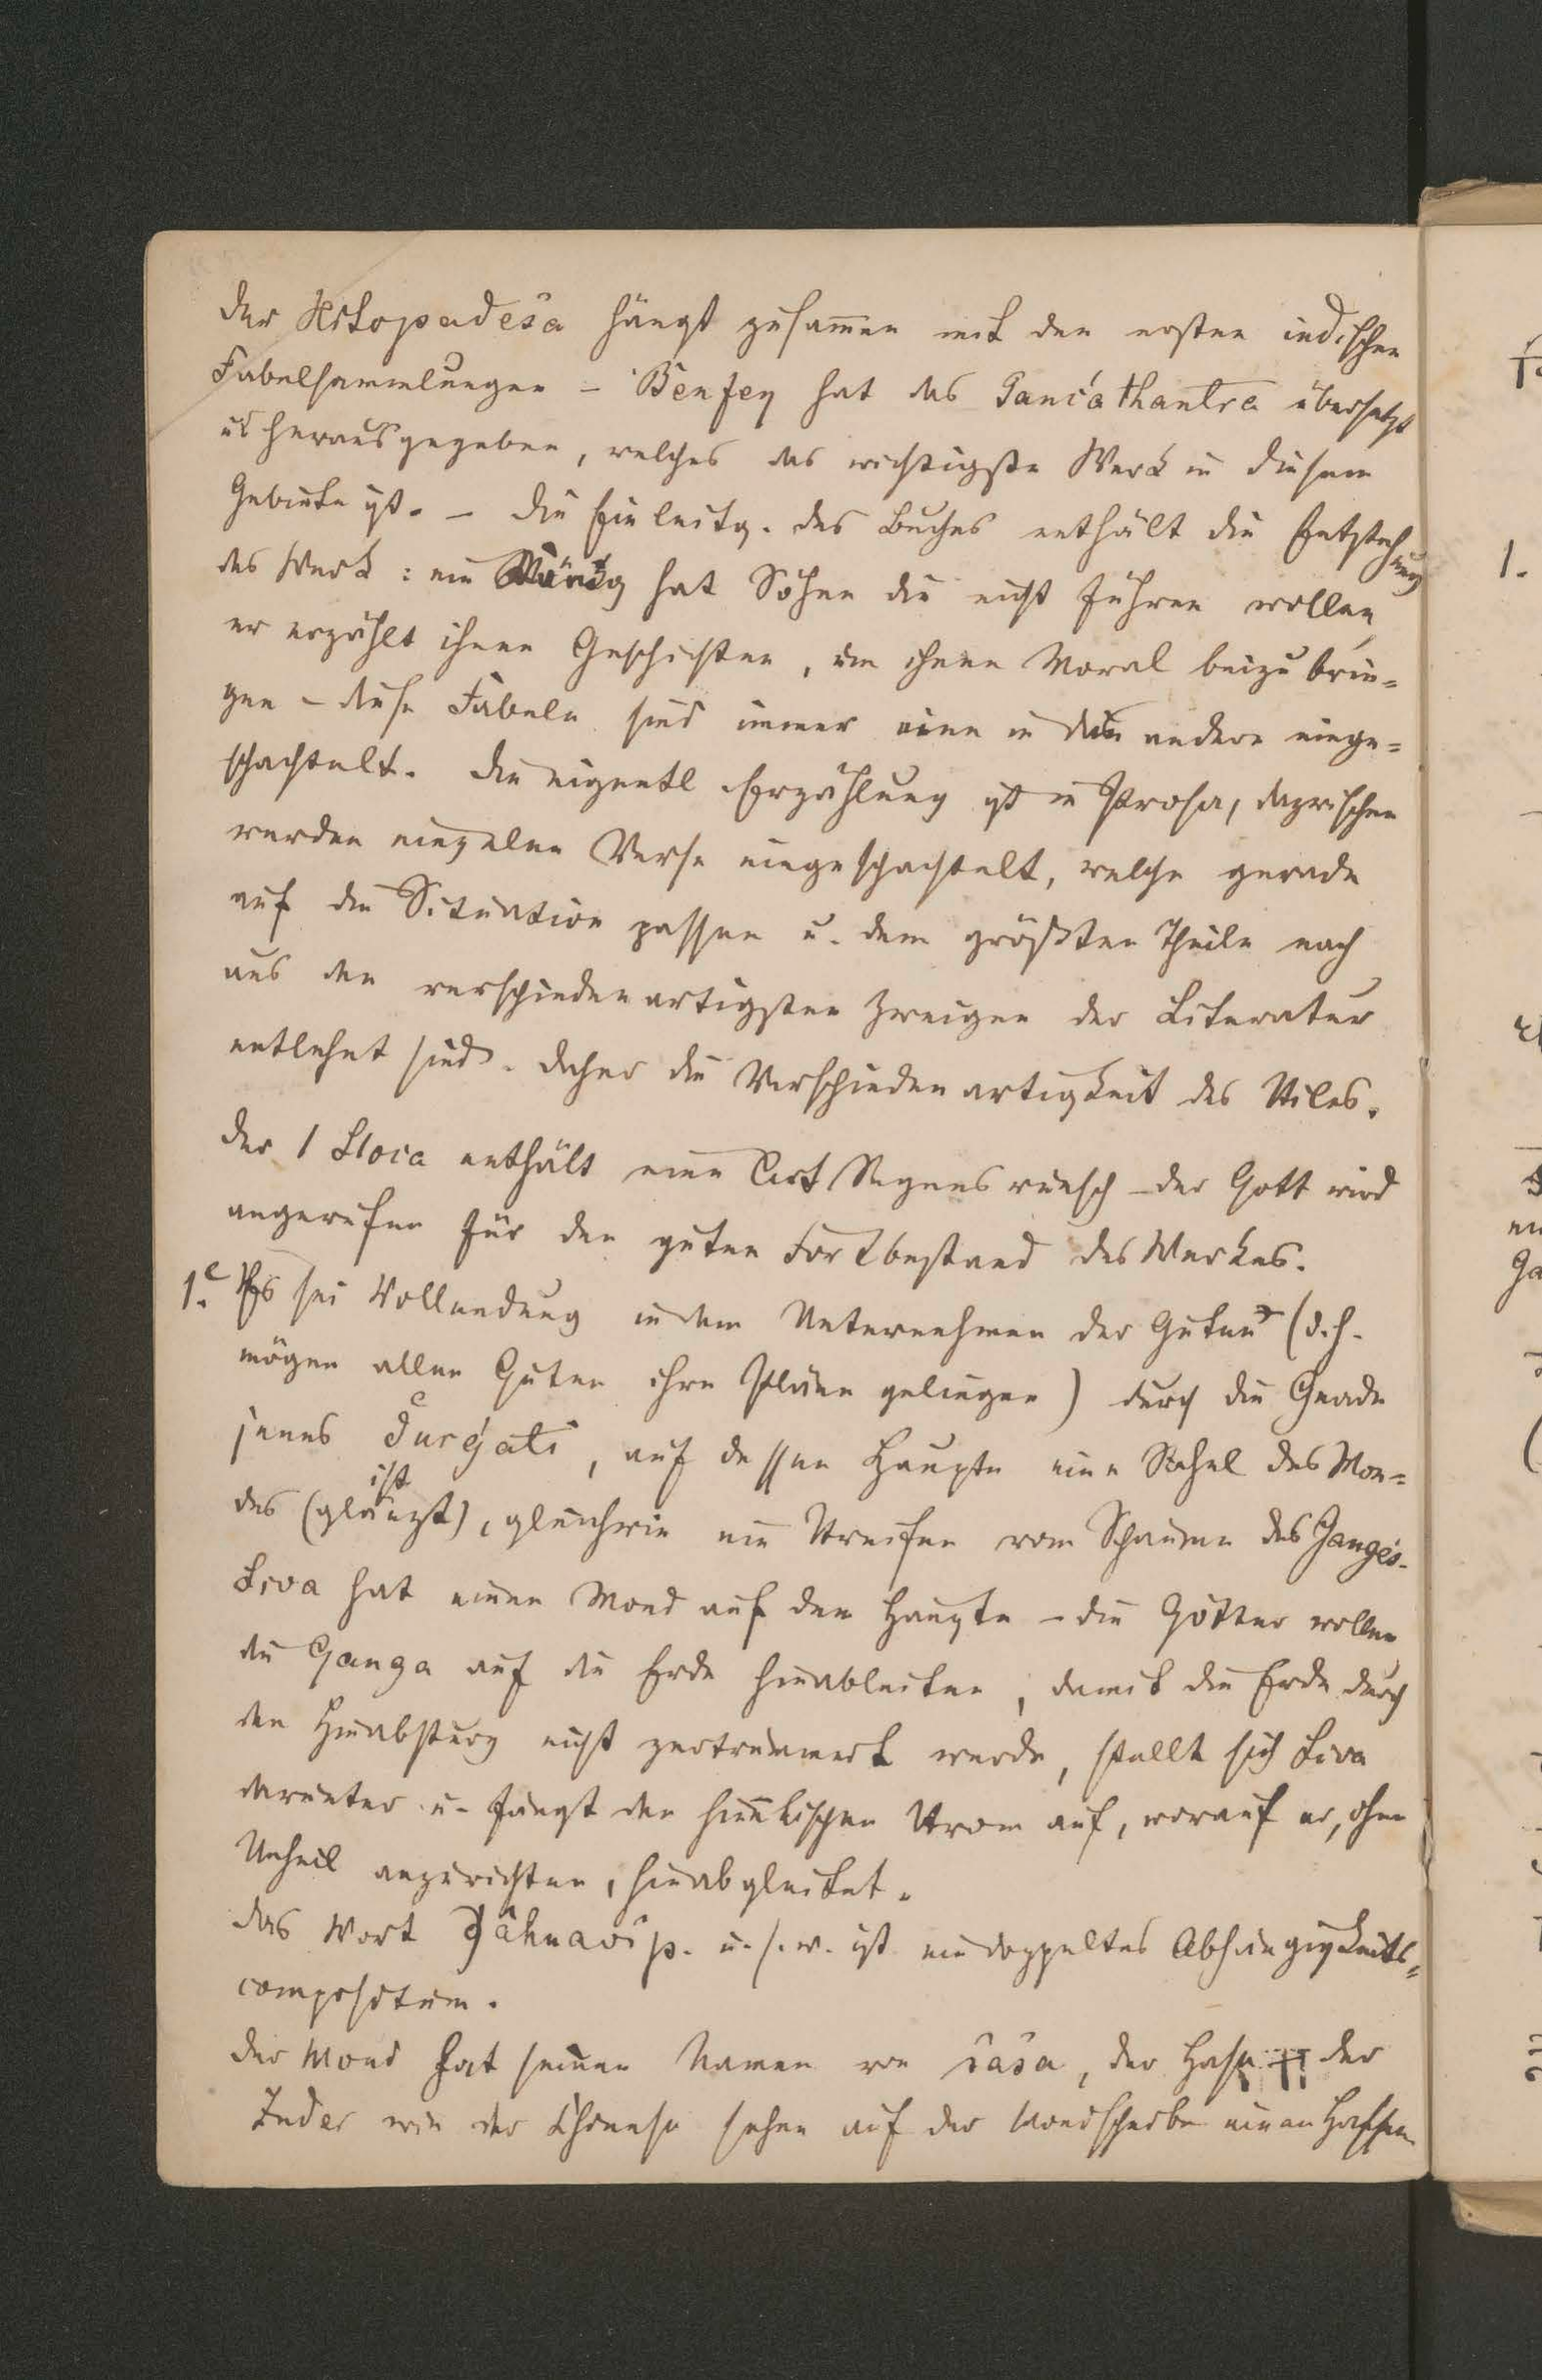 Der Hitopadeśa hängt zusam̅en mit den ersten indischen
Fabelsammlungen – Benfey hat das Pancathantra übersetzt
u herausgegeben, welches das wichtigste Werk in diesem
Gebiete ist. – Die Einleitg. des Buches enthält die Entstehung
des Werk: ein König hat Söhne die nicht führen wollen,
er erzählt ihnen Geschichten, um ihnen Moral beizubrin=
gen – diese Fabeln sind immer eine in die andere einge=
schachtelt. Die eigentl Erzählung ist in Prosa, dazwischen
werden einzelne Verse eingeschachtelt, welche gerade
auf die Situation passen u. dem größten Theile nach
aus den verschiedenartigsten Zweigen der Literatur
entlehnt sind. Daher die Verschiedenartigkeit des Stiles.
Der 1 Sloca enthält eine Art Segenswunsch – der Gott wird
angerufen für den guten Fortbestand des Werkes.
1. Es sei Vollendung in dem Unternehmen der Guten (d.h.
mögen allen Guten ihre Pläne gelingen) durch die Gnade
jenes Durǵati, auf dessen Haupte eine Sichel des Mon=
ist
des (glänzt), gleichwie ein Streifen vom Schaume des Ganges.
Siva hat einen Mond auf dem Haupte – die Götter wollen
die Ganga auf die Erde hinableiten, damit die Erde durch
den Hinabsturz nicht zertrümmert werde, stellt sich Siva
darunter u. fängt den him̅lischen Strom auf, worauf er, ohne
Unheil anzurichten, hinabgleitet.
Das Wort Jâhnavî p. u.s.w. ist ein doppeltes Abhängigkeits=
compositum.
Der Mond hat seinen Namen von śaśa, der Hase der
Inder wie der Chinese sehen auf der Mondscheibe einen Hasen